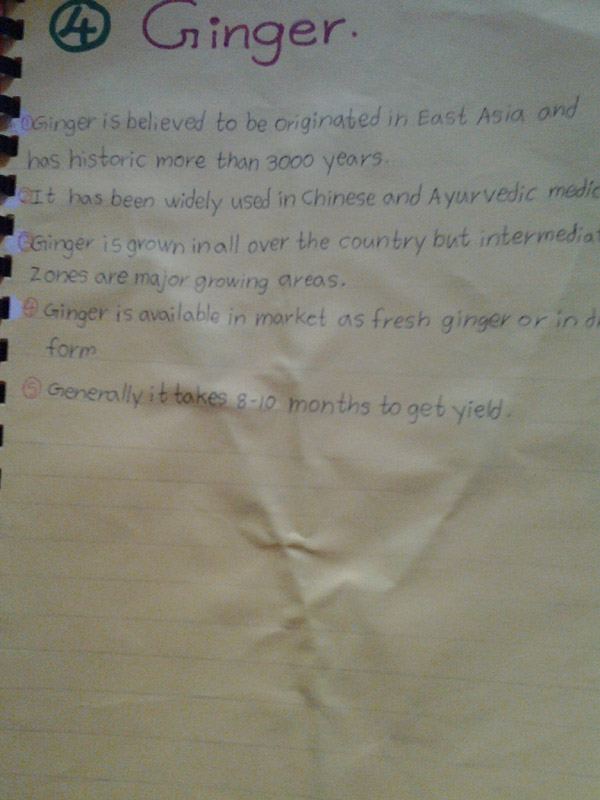 ④ Ginger.
① Ginger is believed to be originated in East Asia and
has historic more than 3000 years.
It has been widely used in Chinese and Ayurvedic medic
Ginger is grown in all over the country but intermediat
Zones are major growing areas.
④ Ginger is available in market as fresh ginger or in
form
⑤ Generally it takes 8-10 months to get yield.